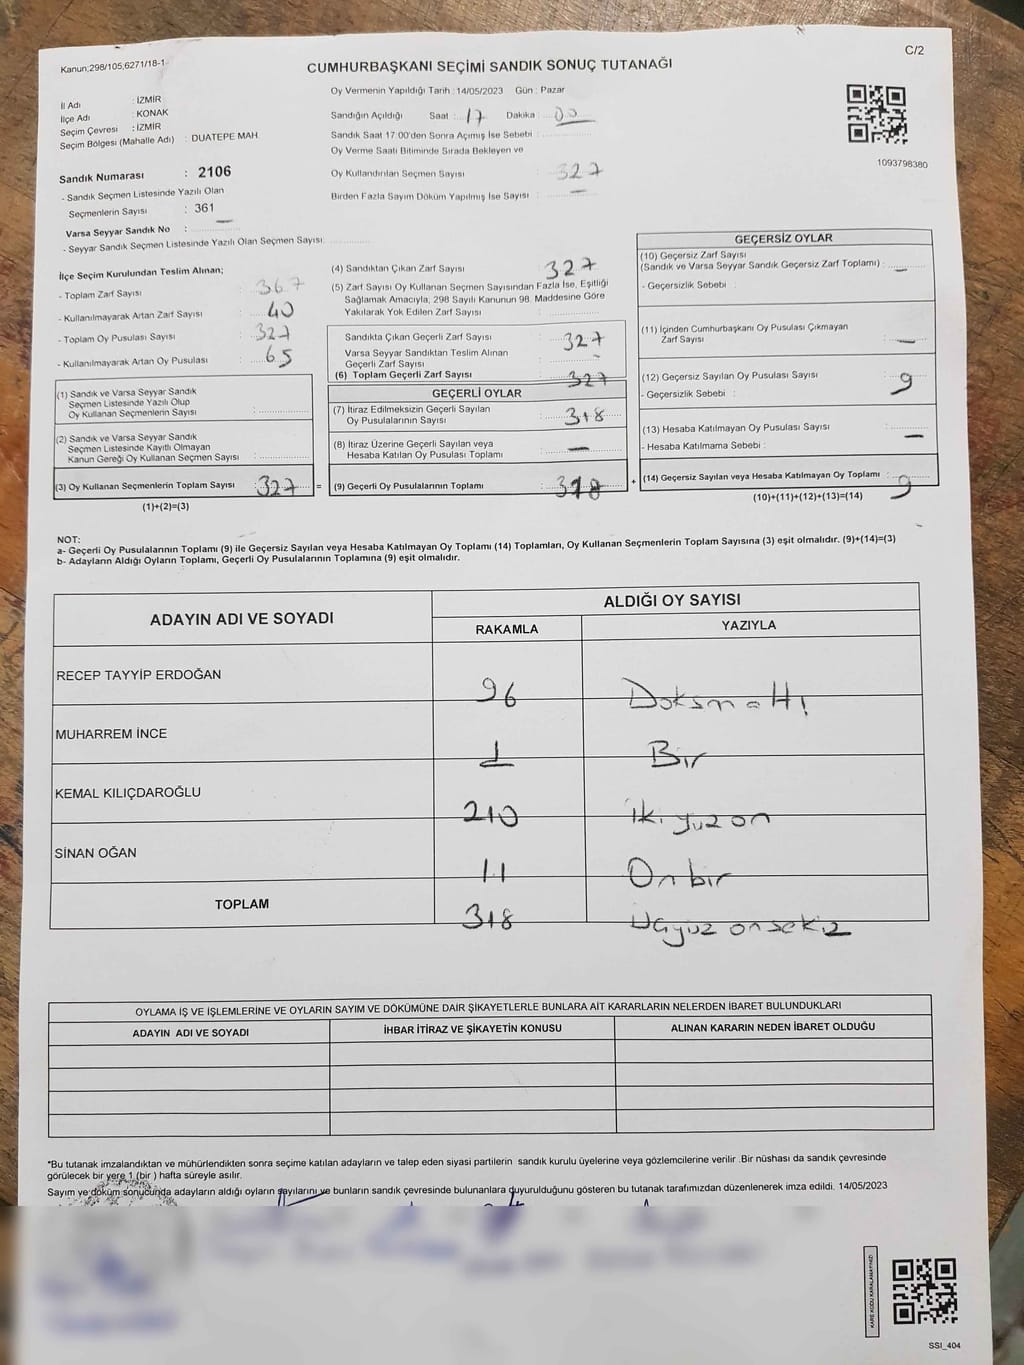 Kanun;298/105,6271/18-1-
C/2
CUMHURBAŞKANI SEÇİMİ SANDIK SONUÇ TUTANAĞI
İl Adı : İZMİR
İlçe Adı : KONAK
Seçim Çevresi : İZMİR
Seçim Bölgesi (Mahalle Adı) : DUATEPE MAH.
Oy Vermenin Yapıldığı Tarih :14/05/2023 Gün : Pazar
Sandığın Açıldığı Saat : 17 Dakika : 00
Sandık Saat 17:00'den Sonra Açımış İse Sebebi :
Oy Verme Saati Bitiminde Sırada Bekleyen ve
Oy Kullandırılan Seçmen Sayısı : 327
Birden Fazla Sayım Döküm Yapılmış İse Sayısı : —
1093798380
Sandık Numarası : 2106
- Sandık Seçmen Listesinde Yazılı Olan
Seçmenlerin Sayısı : 361
Varsa Seyyar Sandık No : —
- Seyyar Sandık Seçmen Listesinde Yazılı Olan Seçmen Sayısı:
İlçe Seçim Kurulundan Teslim Alınan;
- Toplam Zarf Sayısı : 367
- Kullanılmayarak Artan Zarf Sayısı : 40
- Toplam Oy Pusulası Sayısı : 327
- Kullanılmayarak Artan Oy Pusulası : 65
(1) Sandık ve Varsa Seyyar Sandık
Seçmen Listesinde Yazılı Olup
Oy Kullanan Seçmenlerin Sayısı :
(2) Sandık ve Varsa Seyyar Sandık
Seçmen Listesinde Kayıtlı Olmayan
Kanun Gereği Oy Kullanan Seçmen Sayısı :
(3) Oy Kullanan Seçmenlerin Toplam Sayısı : 327 =
(1)+(2)=(3)
(4) Sandıktan Çıkan Zarf Sayısı : 327
(5) Zarf Sayısı Oy Kullanan Seçmen Sayısından Fazla İse, Eşitliği
Sağlamak Amacıyla, 298 Sayılı Kanunun 98. Maddesine Göre
Yakılarak Yok Edilen Zarf Sayısı :
Sandıkta Çıkan Geçerli Zarf Sayısı : 327
Varsa Seyyar Sandıktan Teslim Alınan
Geçerli Zarf Sayısı : -
(6) Toplam Geçerli Zarf Sayısı : 327
GEÇERLİ OYLAR
(7) İtiraz Edilmeksizin Geçerli Sayılan
Oy Pusulalarının Sayısı : 318
(8) İtiraz Üzerine Geçerli Sayılan veya
Hesaba Katılan Oy Pusulası Toplamı : —
(9) Geçerli Oy Pusulalarının Toplamı : 318 +
GEÇERSİZ OYLAR
(10) Geçersiz Zarf Sayısı
(Sandık ve Varsa Seyyar Sandık Geçersiz Zarf Toplamı) : —
- Geçersizlik Sebebi :
(11) İçinden Cumhurbaşkanı Oy Pusulası Çıkmayan
Zarf Sayısı : —
(12) Geçersiz Sayılan Oy Pusulası Sayısı : 9
- Geçersizlik Sebebi :
(13) Hesaba Katılmayan Oy Pusulası Sayısı : —
- Hesaba Katılmama Sebebi :
(14) Geçersiz Sayılan veya Hesaba Katılmayan Oy Toplamı : 9
(10)+(11)+(12)+(13)=(14)
NOT:
a- Geçerli Oy Pusulalarının Toplamı (9) ile Geçersiz Sayılan veya Hesaba Katılmayan Oy Toplamı (14) Toplamları, Oy Kullanan Seçmenlerin Toplam Sayısına (3) eşit olmalıdır. (9)+(14)=(3)
b- Adayların Aldığı Oyların Toplamı, Geçerli Oy Pusulalarının Toplamına (9) eşit olmalıdır.
ADAYIN ADI VE SOYADI ALDIĞI OY SAYISI
RAKAMLA YAZIYLA
RECEP TAYYİP ERDOĞAN 96 Doksmaltı
MUHARREM İNCE 1 Bir
KEMAL KILIÇDAROĞLU 210 iki yüz on
SİNAN OĞAN 11 On bir
TOPLAM 318 Üçyüz onsekiz
OYLAMA İŞ VE İŞLEMLERİNE VE OYLARIN SAYIM VE DÖKÜMÜNE DAİR ŞİKAYETLERLE BUNLARA AİT KARARLARIN NELERDEN İBARET BULUNDUKLARI
ADAYIN ADI VE SOYADI İHBAR İTİRAZ VE ŞİKAYETİN KONUSU ALINAN KARARIN NEDEN İBARET OLDUĞU
*Bu tutanak imzalandıktan ve mühürlendikten sonra seçime katılan adayların ve talep eden siyasi partilerin sandık kurulu üyelerine veya gözlemcilerine verilir .Bir nüshası da sandık çevresinde
görülecek bir yere 1 (bir ) hafta süreyle asılır.
Sayım ve döküm sonucunda adayların aldığı oyların sayılarını ve bunların sandık çevresinde bulunanlara duyurulduğunu gösteren bu tutanak tarafımızdan düzenlenerek imza edildi. 14/05/2023
KARE KODU KARALAMAYINIZ!
SSI_404